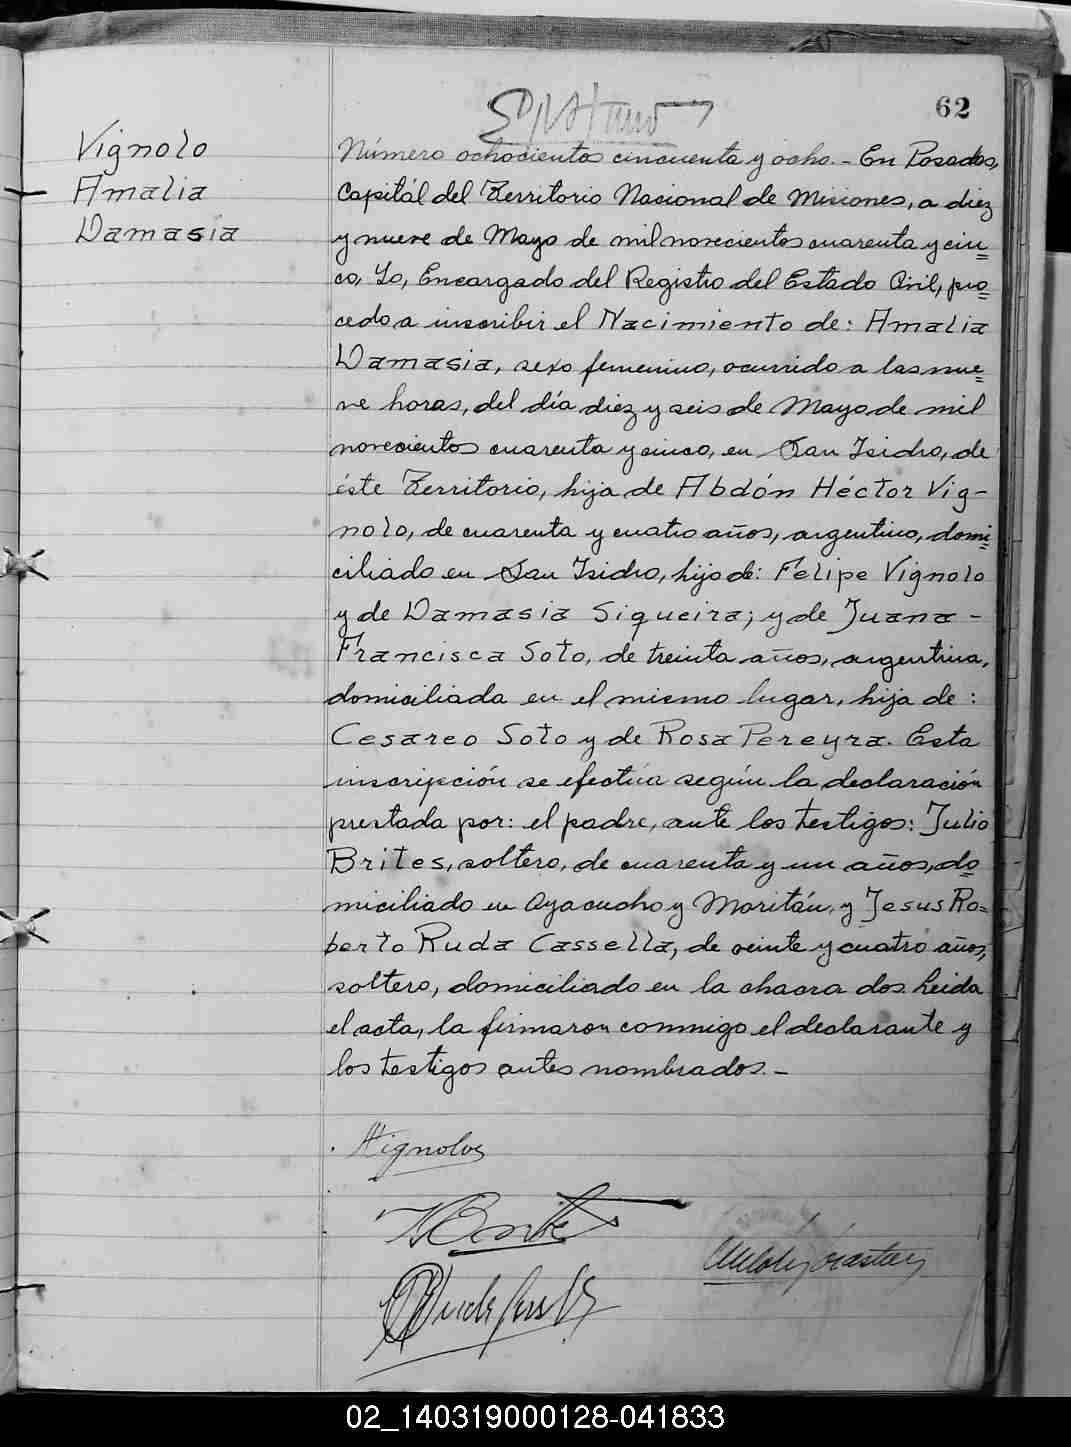 62
Vignolo
Amalia
Damasia
Número ochocientos cincuenta y ocho.- En Posadas,
Capitál del Territorio Nacional de Misiones, a diez
y nueve de Mayo de mil novecientos cuarenta y cin=
co, Yo, Encargado del Registro del Estado Civil, pro=
cedo a inscribir el Nacimiento de: Amalia
Damasia, sexo femenino, ocurrido a las nue=
ve horas, del día diez y seis de Mayo de mil
novecientos cuarenta y cinco, en San Isidro, de
éste Territorio, hija de Abdón Héctor Vig-
nolo, de cuarenta y cuatro años, argentino, domi=
ciliado en San Isidro, hijo de: Felipe Vignolo
y de Damasia Siqueira; y de Juana -
Francisca Soto, de treinta años, argentina,
domiciliada en el mismo lugar, hija de:
Cesareo Soto y de Rosa Pereyra. Esta
inscripción se efectúa según la declaración
prestada por: el padre, ante los testigos: Julio
Brites, soltero, de cuarenta y un años, do=
miciliado en Ayacucho y Moritán, y Jesus Ro=
berto Ruda Cassella, de veinte y cuatro años,
soltero, domiciliado en la chacra dos. Leida
el acta, la firmaron conmigo el declarante y
los testigos antes nombrados.-
02_140319000128-041833